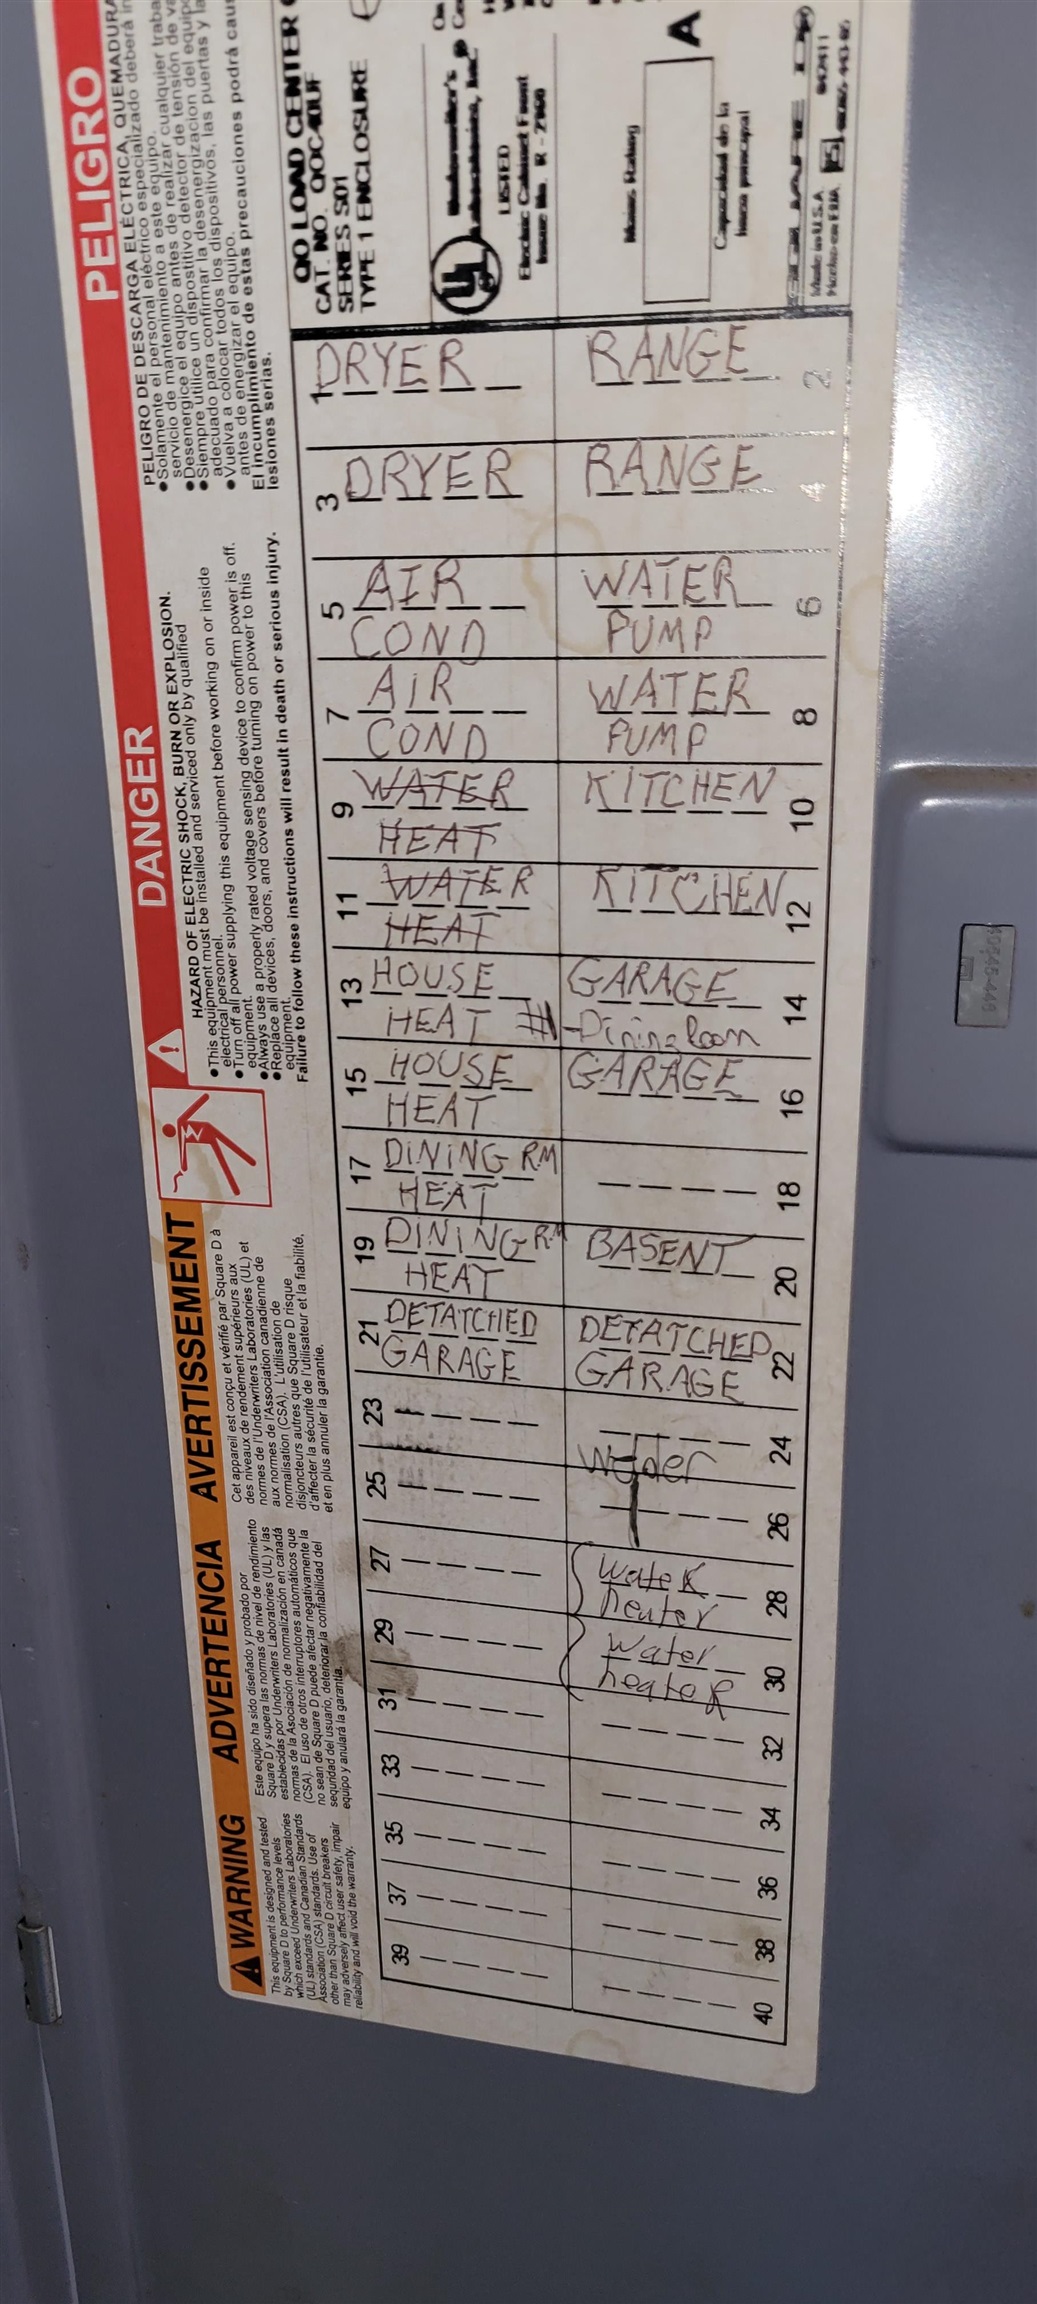 PELIGRO
PELIGRO DE DESCARGA ELÉCTRICA, QUEMADURA
●Solamente el personal eléctrico especializado deberá
servicio de mantenimiento a este equipo.
●Desenergice el equipo antes de realizar cualquier
●Siempre utilice un dispositivo detector de tensión de
adecuado para confirmar la desenergización del equipo
●Vuelva a colocar todos los dispositivos, las puertas y
antes de energizar el equipo.
El incumplimiento de estas precauciones podrá
lesiones serias.
DANGER
HAZARD OF ELECTRIC SHOCK, BURN OR EXPLOSION.
●This equipment must be installed and serviced only by qualified
electrical personnel.
●Turn off all power supplying this equipment before working on or inside
equipment.
●Always use a properly rated voltage sensing device to confirm power is off.
●Replace all devices, doors, and covers before turning on power to this
equipment.
Failure to follow these instructions will result in death or serious injury.
AVERTISSEMENT
Cet appareil est conçu et vérifié par Square D à
des niveaux de rendement supérieurs aux
normes de l'Underwriters Laboratories (UL) et
aux normes de l'Association canadienne de
normalisation (CSA). L'utilisation de
disjoncteurs autres que Square D risque
d'affecter la sécurité de l'utilisateur et la fiabilité.
et en plus annuler la garantie.
ADVERTENCIA
Este equipo ha sido diseñado y probado por
Square D y supera las normas de nivel de rendimiento
establecidas por Underwriters Laboratories (UL) y las
normas de la Asociación de normalización en canadá
(CSA). El uso de otros interruptores automáticos que
no sean de Square D puede afectar negativamente la
seguridad del usuario, deteriorar la confiabilidad del
equipo y anulará la garantía.
WARNING
This equipment is designed and tested
by Square D to performance levels
which exceed Underwriters Laboratories
(UL) standards and Canadian Standards
Association (CSA) standards. Use of
other than Square D circuit breakers
may adversely affect user safety, impair
reliability and will void the warranty.
QO LOAD CENTER
CAT. NO. QOC40UF
SERIES S01
TYPE 1 ENCLOSURE
UL
Underwriter's
Laboratories, Inc.
LISTED
Electric Cabinet Front
Issue No. R-2960
Mains Rating
A
Capacidad de la
linea principal
SQUARE D
Made in U.S.A
Hecho en EUA
1 DRYER RANGE 2
3 DRYER RANGE 4
5 AIR COND WATER PUMP 6
7 AIR COND WATER PUMP 8
9 WATER HEAT KITCHEN 10
11 WATER HEAT KITCHEN 12
13 HOUSE HEAT GARAGE -Dining Room 14
15 HOUSE HEAT GARAGE 16
17 DINING RM HEAT 18
19 DINING RM HEAT BASENT 20
21 DETATCHED GARAGE DETATCHED GARAGE 22
23 24
25 26
27 water heater 28
29 water heater 30
31 32
33 34
35 36
37 38
39 40